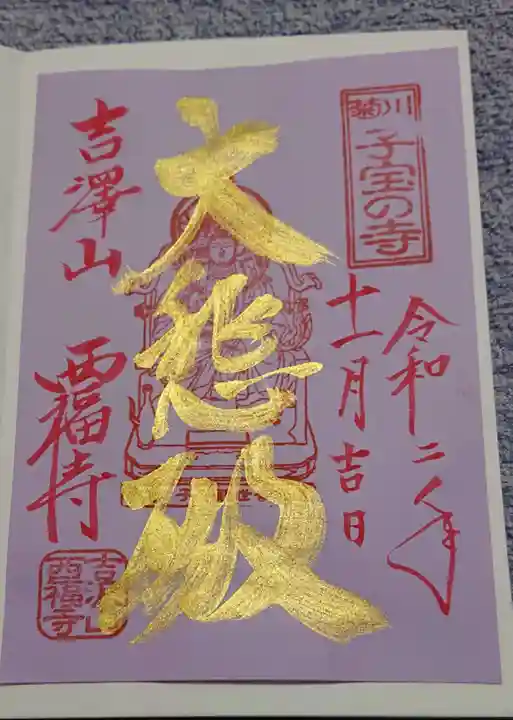 菊川
子宝の寺
令和二年
十一月吉日
大悲殿
吉澤山 西福寺
吉沢山
西福寺